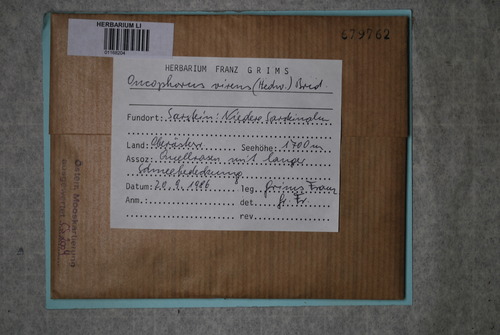 HERBARIUM LI
679762
HERBARIUM FRANZ GRIMS
Oncophorus virens (Hedw.) Brid.
Fundort: Sarstein: Niedere Sardeinalm
Land: Oberösterr. Seehöhe: 1700 m
Assoz: Quellrasen mit langer
Schneebedeckung
Datum: 20.9.1986 leg. Grims Franz
Anm.: det. Gr. Fr.
rev.
Österr. Mooskartierung
ausgewertet